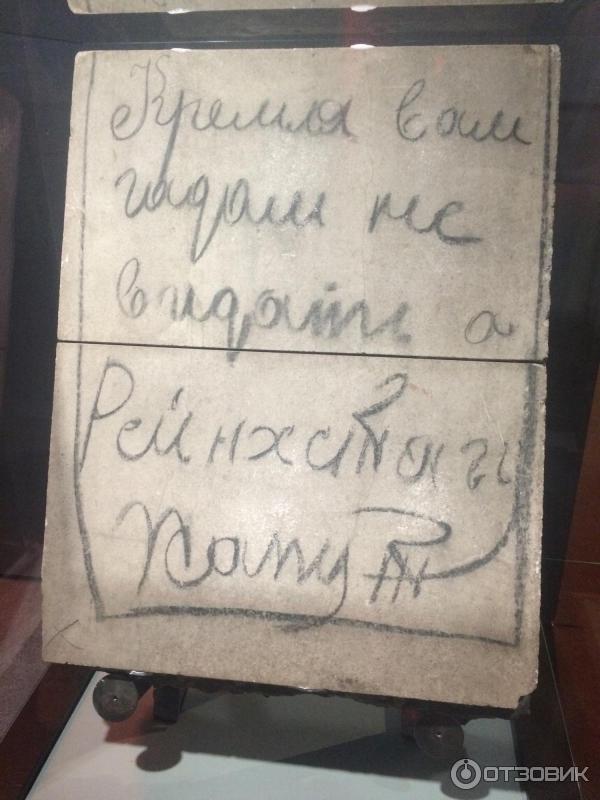 Кремля вам
гадам не
видать а
Рейнхстагу
капут
ОТЗОВИК